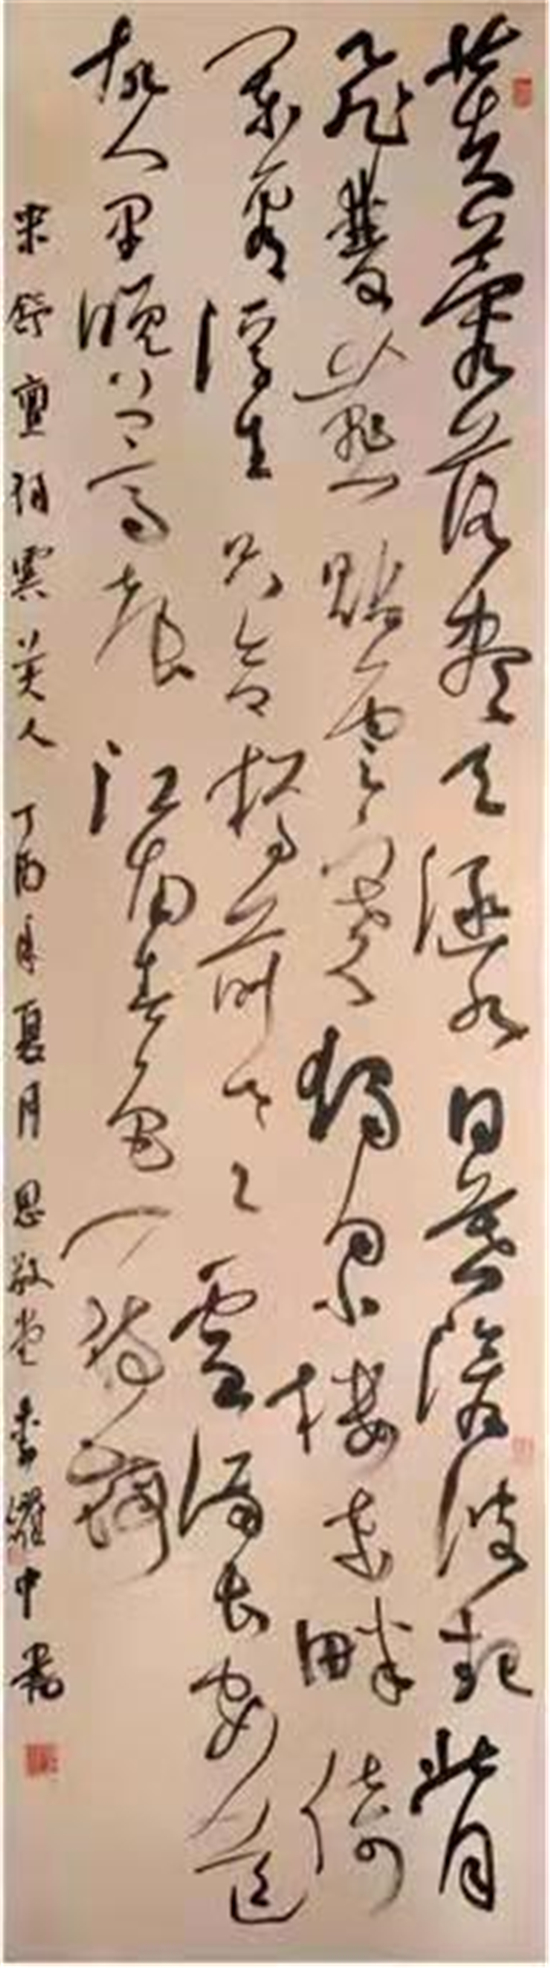 芙蓉落盡天涵水日暮滄波起背
飛雙燕貼雲寒獨向小樓東畔倚
闌看浮生只合樽前老雪滿長安道
故人早晚上高臺江南春色一枝梅
宋舒亶詞虞美人丁酉年夏月思敬堂李耀中書